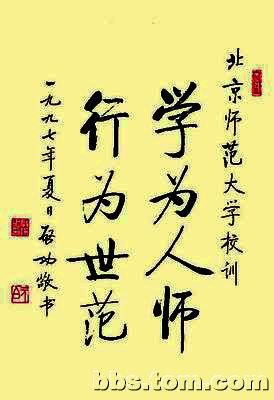 北京师范大学校训
学为人师
行为世范
一九九七年夏日启功敬书
bbs.tom.com